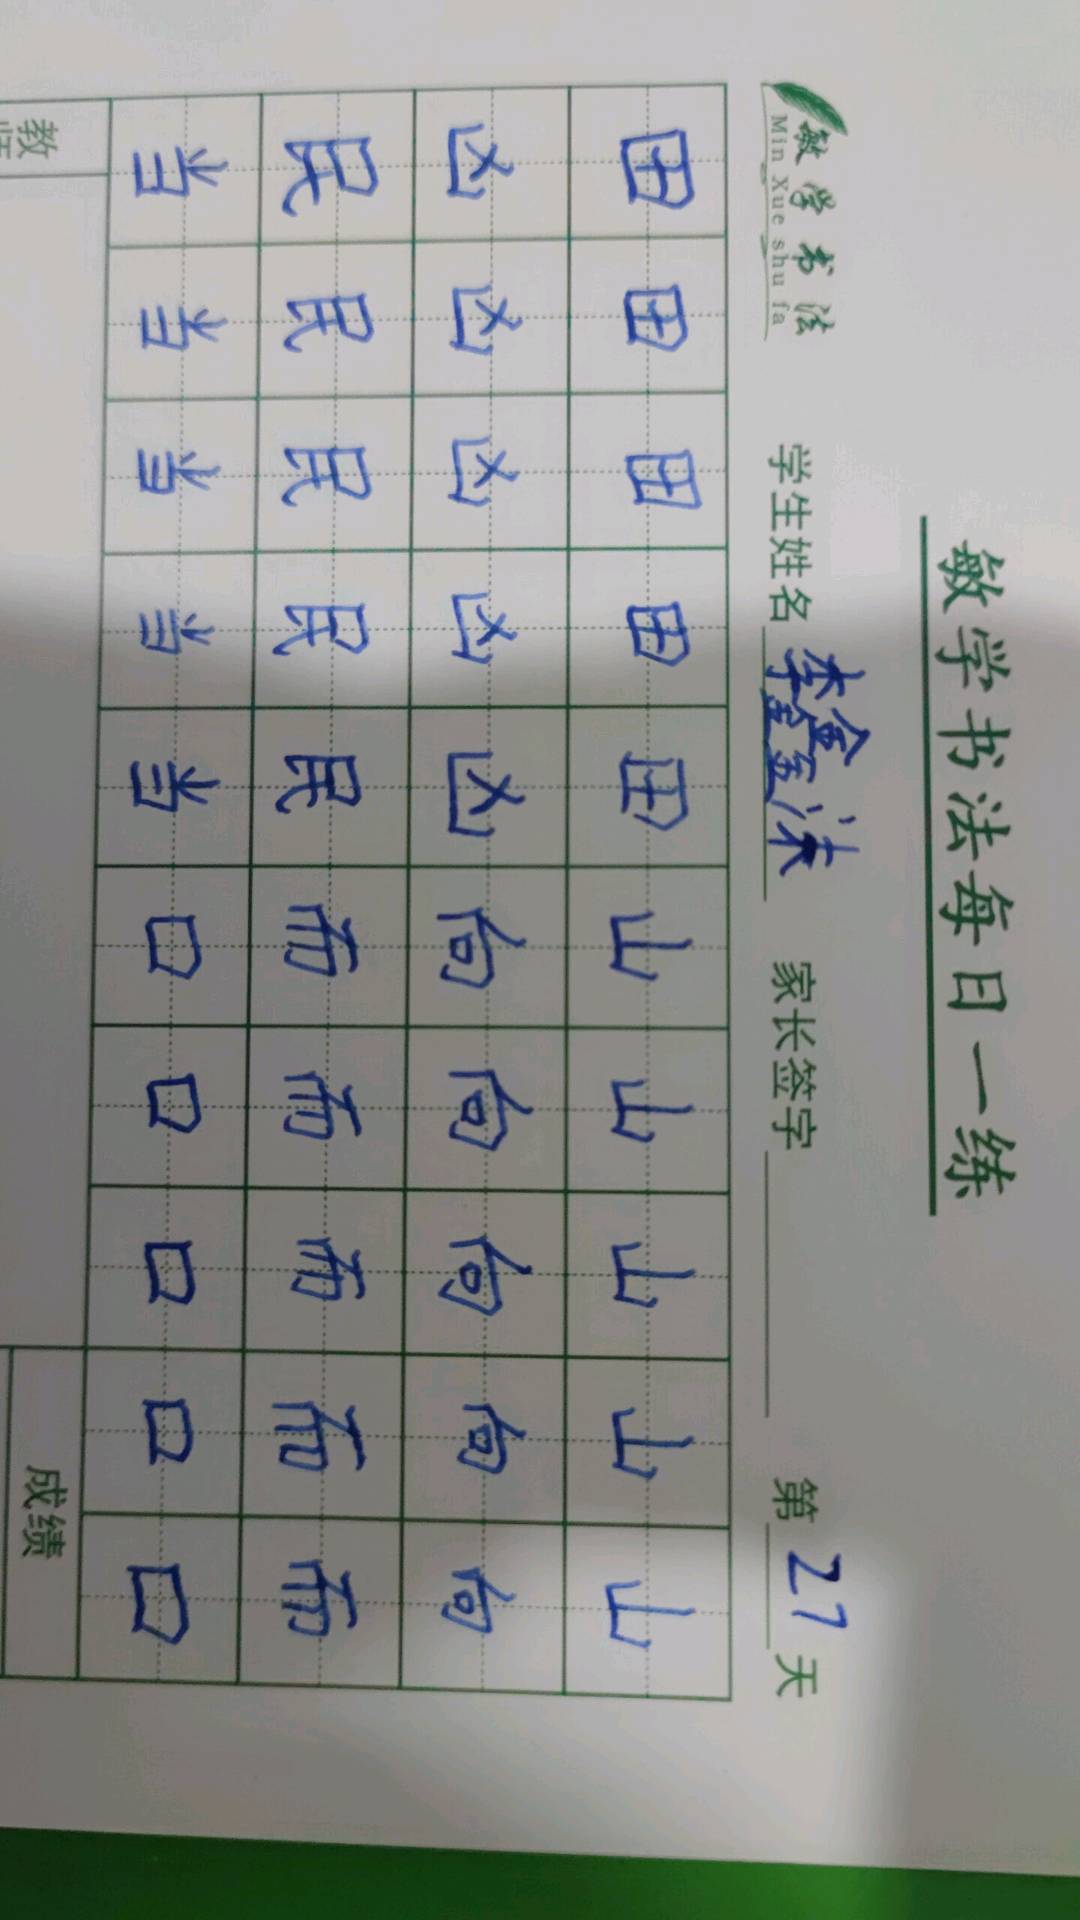 敏学书法每日一练
敏学书法 学生姓名 李鑫沫 家长签字 第27天
Min Xue shu fa
田田田田田山山山山山
凶凶凶凶凶向向向向向
民民民民民而而而而而
当当当当当口口口口口
教师 成绩